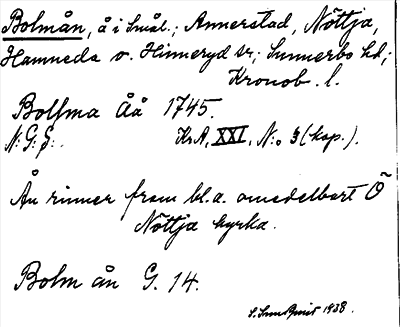 Bolmån, å i Smål.; Annerstad, Nöttja,
Hamneda o. Hinneryd sr; Sunnerbo hd;
Kronob. l.
Bollma Åå 1745.
N: G: S:. KrA, XXI, N:o 3 (kop.).
Ån rinner fram bl.a. omedelbart Ö
Nöttja kyrka.
Bolm ån G. 14.
S. Sundquist 1938.